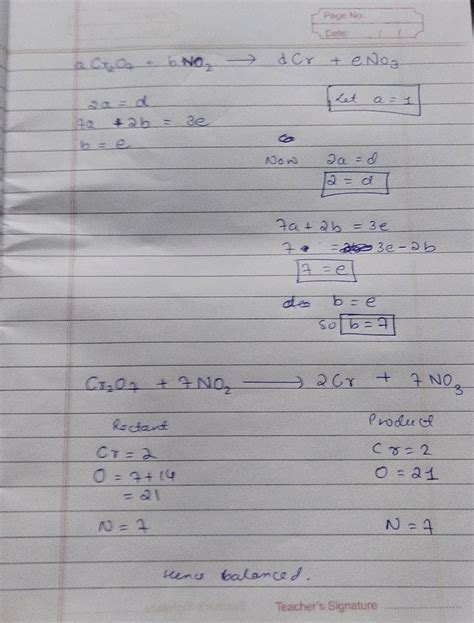 Page No:
Date: / /
aCr₂O₇ + bNO₂ → dCr + eNO₃
2a = d
Let a = 1
7a + 2b = 3e
b = e
Now 2a = d
2 = d
7a + 2b = 3e
7 = 3e - 2b
7 = e
b = e
so b = 7
Cr₂O₇ + 7NO₂ → 2Cr + 7NO₃
Rectant Product
Cr = 2 Cr = 2
O = 7+14 O = 21
= 21
N = 7 N = 7
Hence balanced.
Teacher's Signature